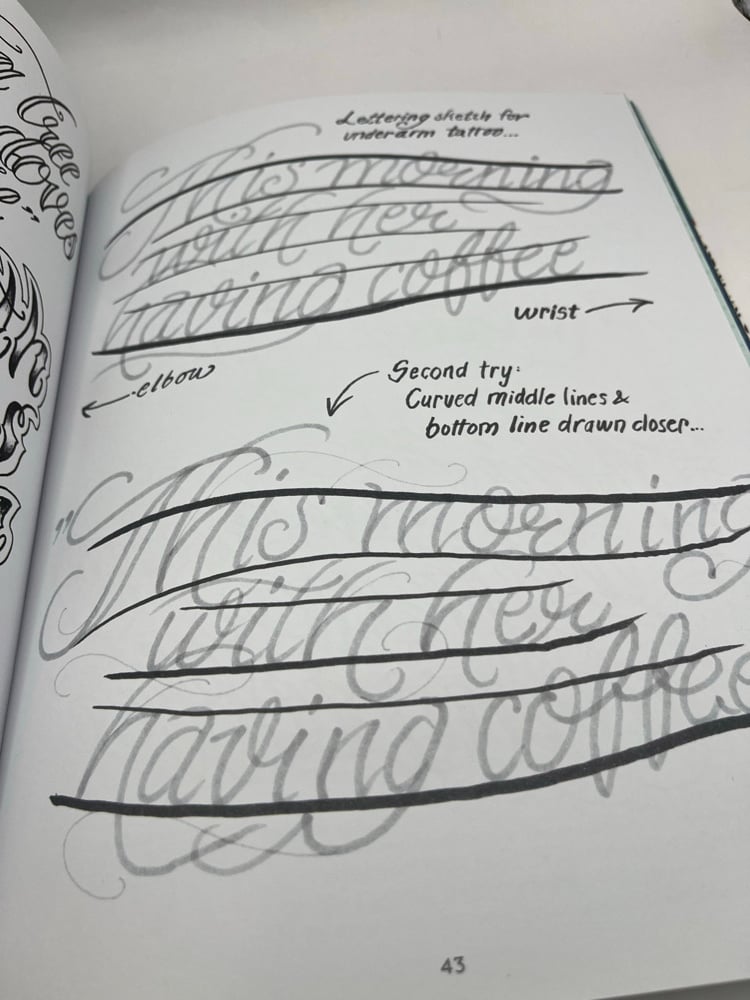 a tree
doves
e"
Lettering sketch for
underarm tattoo...
This morning
with her
having coffee
wrist
elbow
Second try:
Curved middle lines &
bottom line drawn closer...
"This morning
with her
having coffee
43